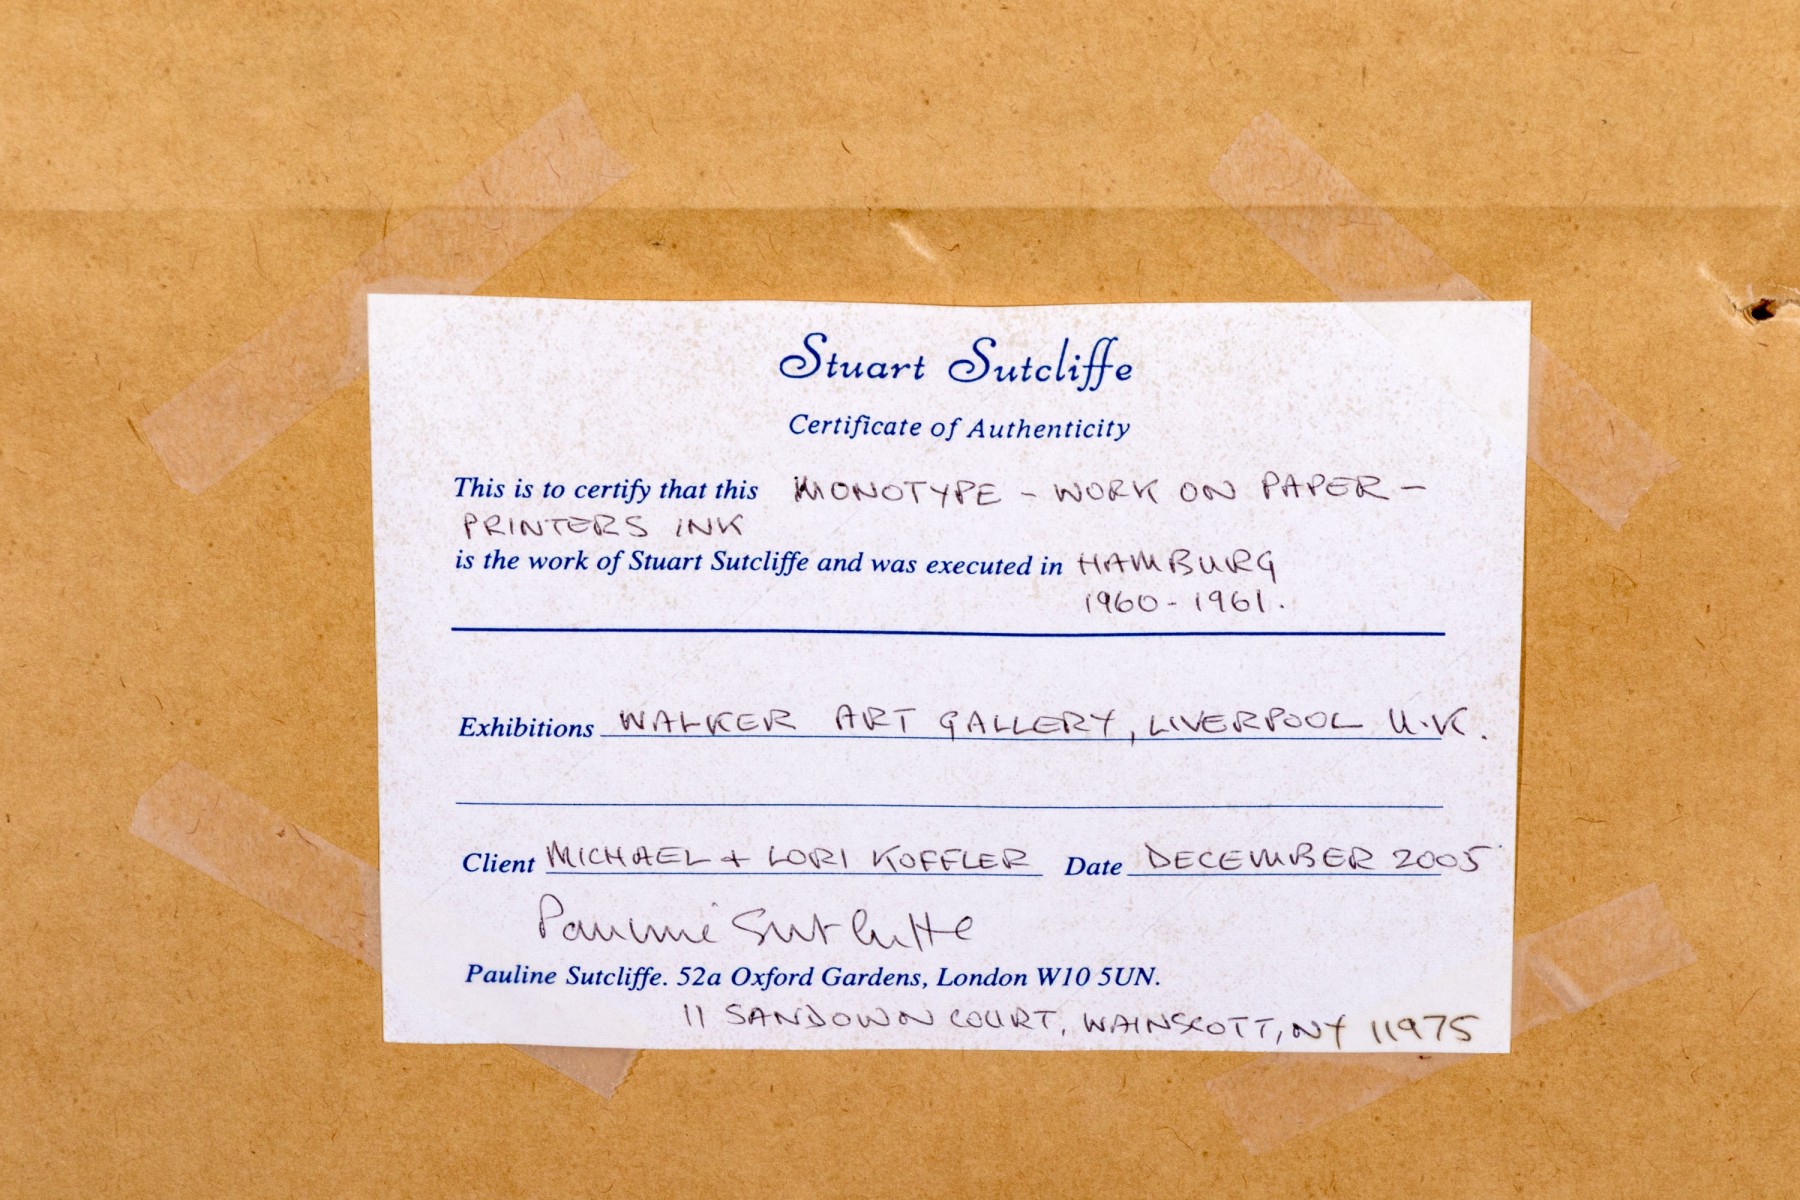 Stuart Sutcliffe
Certificate of Authenticity
This is to certify that this MONOTYPE - WORK ON PAPER -
PRINTERS INK
is the work of Stuart Sutcliffe and was executed in HAMBURG
1960 - 1961.
Exhibitions WALKER ART GALLERY, LIVERPOOL U.K.
Client MICHAEL + LORI KOFFLER Date DECEMBER 2005
Pauline Sutcliffe
Pauline Sutcliffe. 52a Oxford Gardens, London W10 5UN.
11 SANDOWN COURT, WAINSCOTT, NY 11975